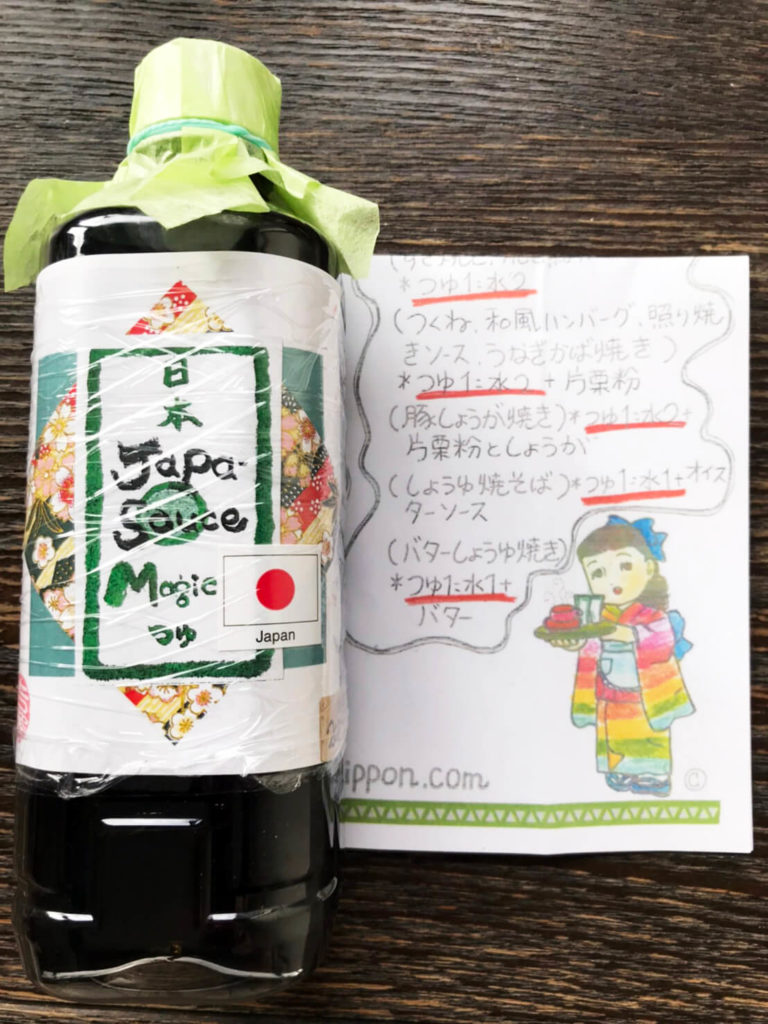 日本
Japa-
Sauce
Magic
つゆ
Japan
*つゆ1:水2
(つくね、和風ハンバーグ、照り焼
きソース、うなぎかば焼き)
*つゆ1:水2+片栗粉
(豚しょうが焼き)*つゆ1:水2+
片栗粉としょうが
(しょうゆ焼そば)*つゆ1:水1+オイス
ターソース
(バターしょうゆ焼き)
*つゆ1:水1+
バター
ippon.com
©